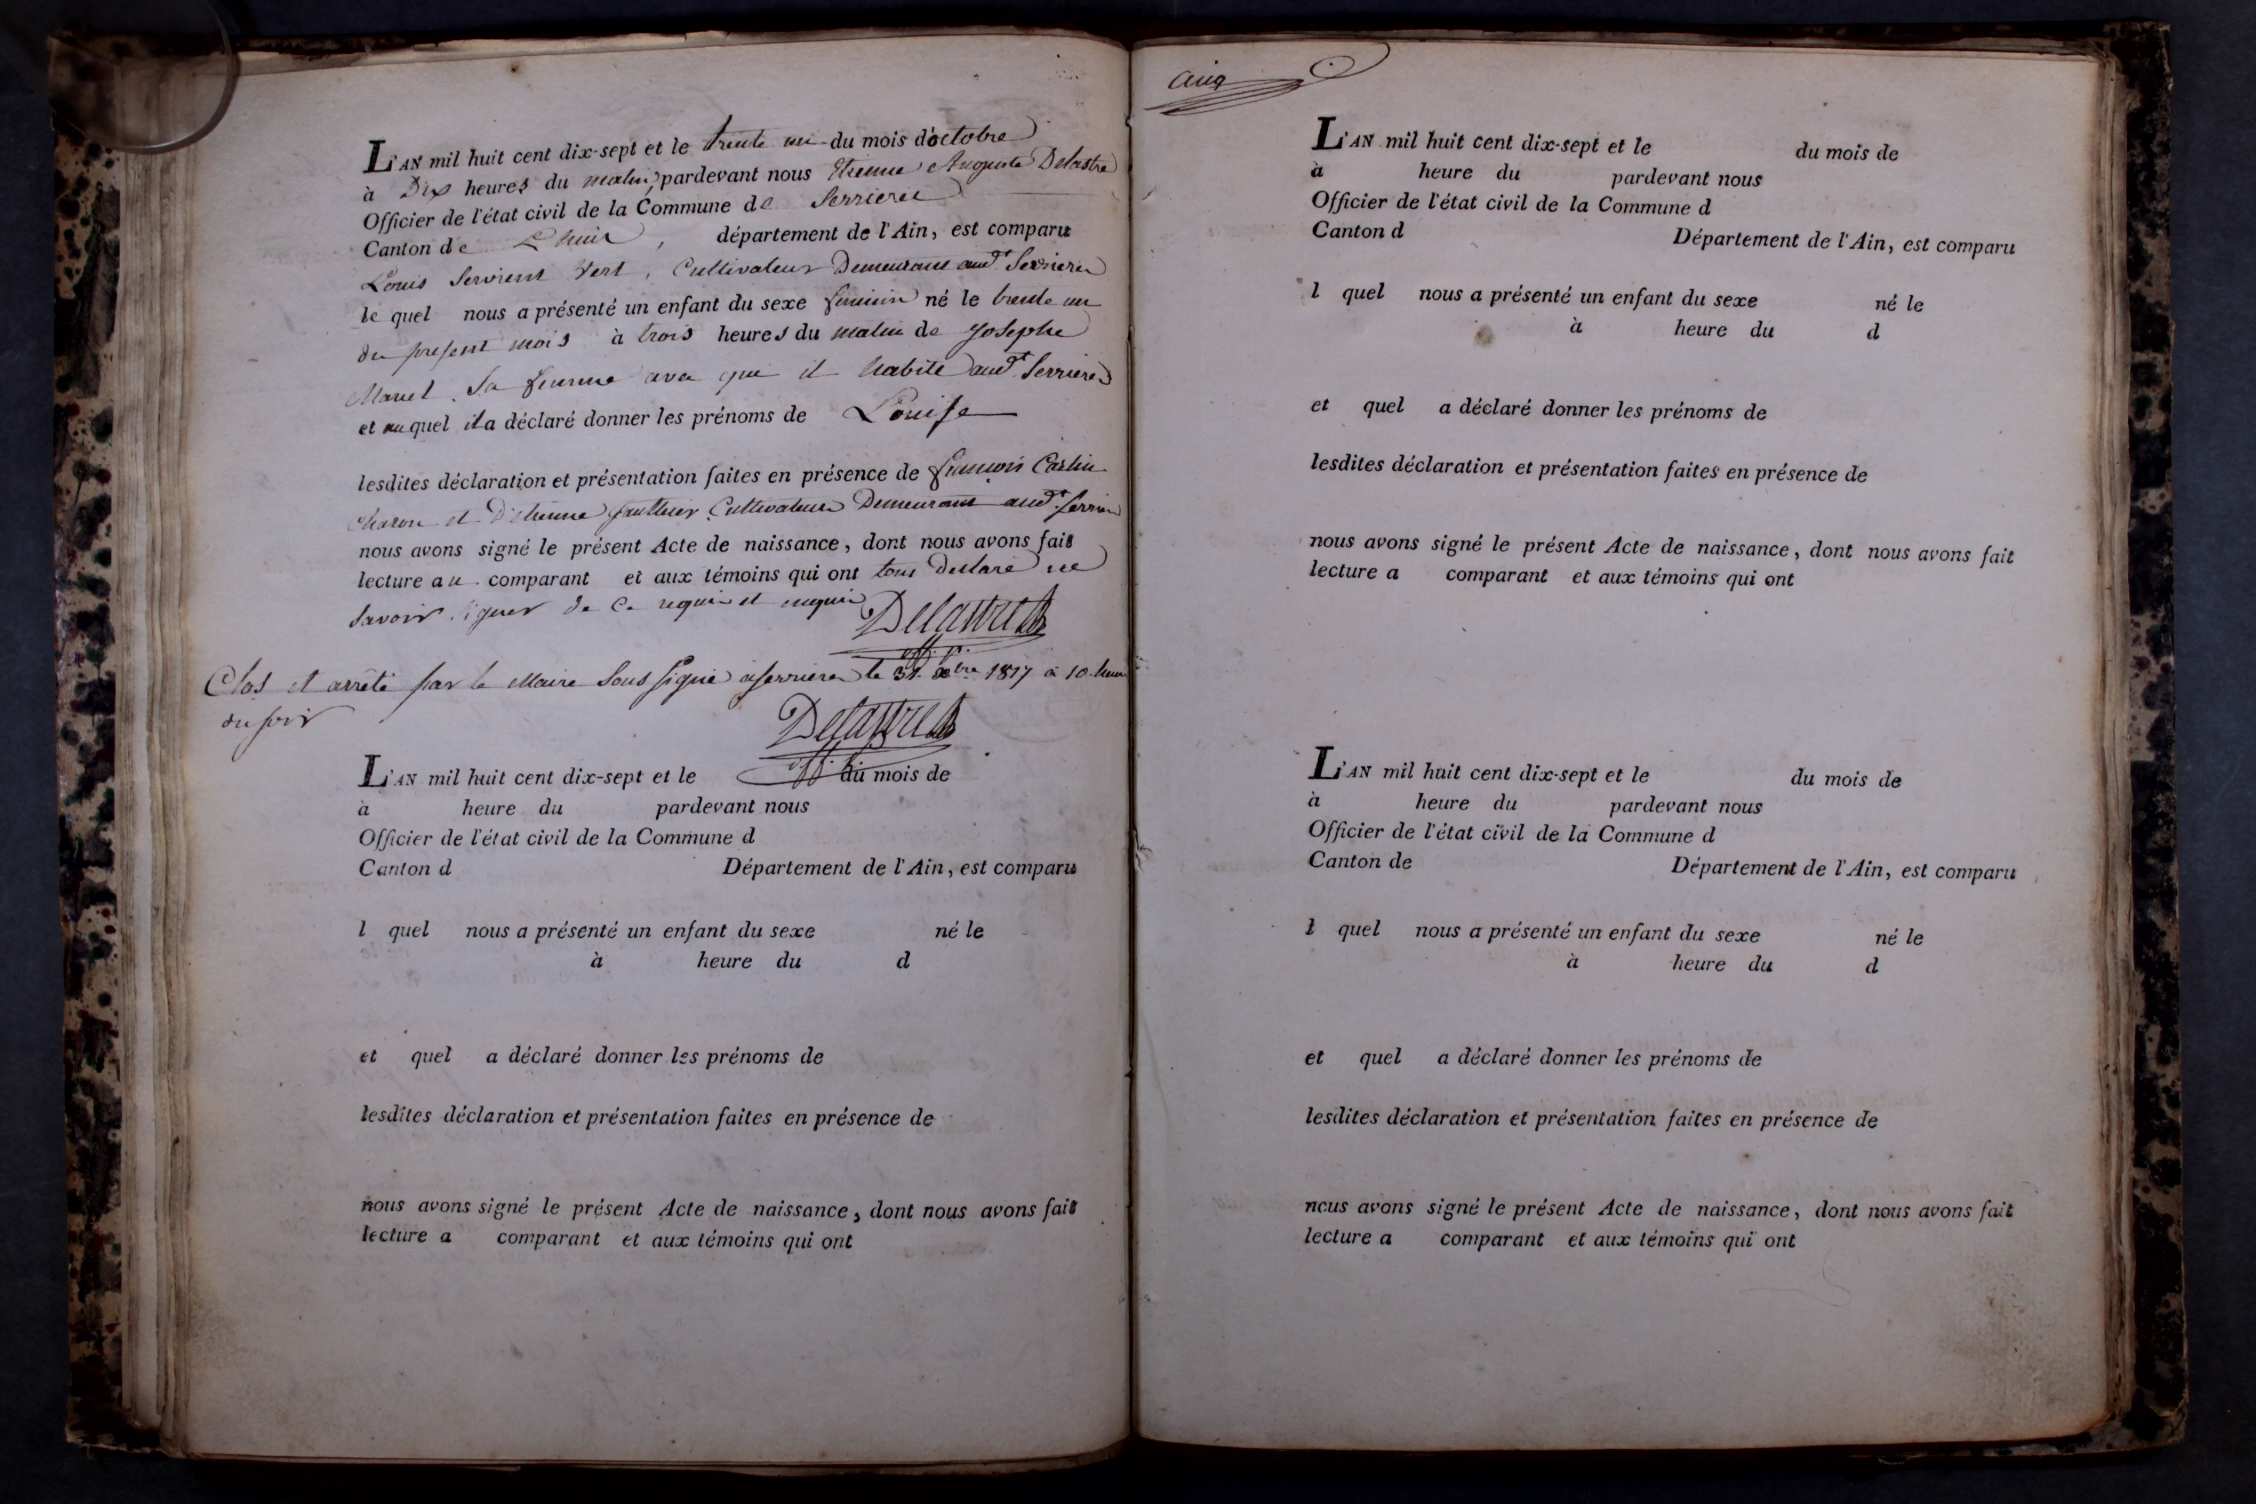 L'AN mil huit cent dix-sept et le trente un du mois d'octobre
à Dix heures du matin, pardevant nous Etienne Auguste Delastre
Officier de l'état civil de la Commune de Serrieres
Canton de Lhuis, département de l'Ain, est comparu
Louis Servient Vert, Cultivateur Demeurant aud.t Serrieres
le quel nous a présenté un enfant du sexe feminin né le trente un
du present mois à trois heures du matin de Josephe
sa femme avec qui il habite aud.t Serrieres
et auquel il a déclaré donner les prénoms de Louise
lesdites déclaration et présentation faites en présence de françois Carlin
Charon et D'etienne gauthier Cultivateurs Demeurant aud.t
nous avons signé le présent Acte de naissance, dont nous avons fait
lecture au comparant et aux témoins qui ont tous declaré ne
savoir signer de ce requis et enquis Delastre
Clos et arrêté par le Maire sous signé à serrieres le 31 Xbre 1817 à 10 heures
du soir
Delastre
L'AN mil huit cent dix-sept et le du mois de
à heure du pardevant nous
Officier de l'état civil de la Commune d
Canton d Département de l'Ain, est comparu
l quel nous a présenté un enfant du sexe né le
à heure du d
et quel a déclaré donner les prénoms de
lesdites déclaration et présentation faites en présence de
nous avons signé le présent Acte de naissance, dont nous avons fait
lecture a comparant et aux témoins qui ont
cinq
L'AN mil huit cent dix-sept et le du mois de
à heure du pardevant nous
Officier de l'état civil de la Commune d
Canton d Département de l'Ain, est comparu
l quel nous a présenté un enfant du sexe né le
à heure du d
et quel a déclaré donner les prénoms de
lesdites déclaration et présentation faites en présence de
nous avons signé le présent Acte de naissance, dont nous avons fait
lecture a comparant et aux témoins qui ont
L'AN mil huit cent dix-sept et le du mois de
à heure du pardevant nous
Officier de l'état civil de la Commune d
Canton de Département de l'Ain, est comparu
l quel nous a présenté un enfant du sexe né le
à heure du d
et quel a déclaré donner les prénoms de
lesdites déclaration et présentation faites en présence de
nous avons signé le présent Acte de naissance, dont nous avons fait
lecture a comparant et aux témoins qui ont